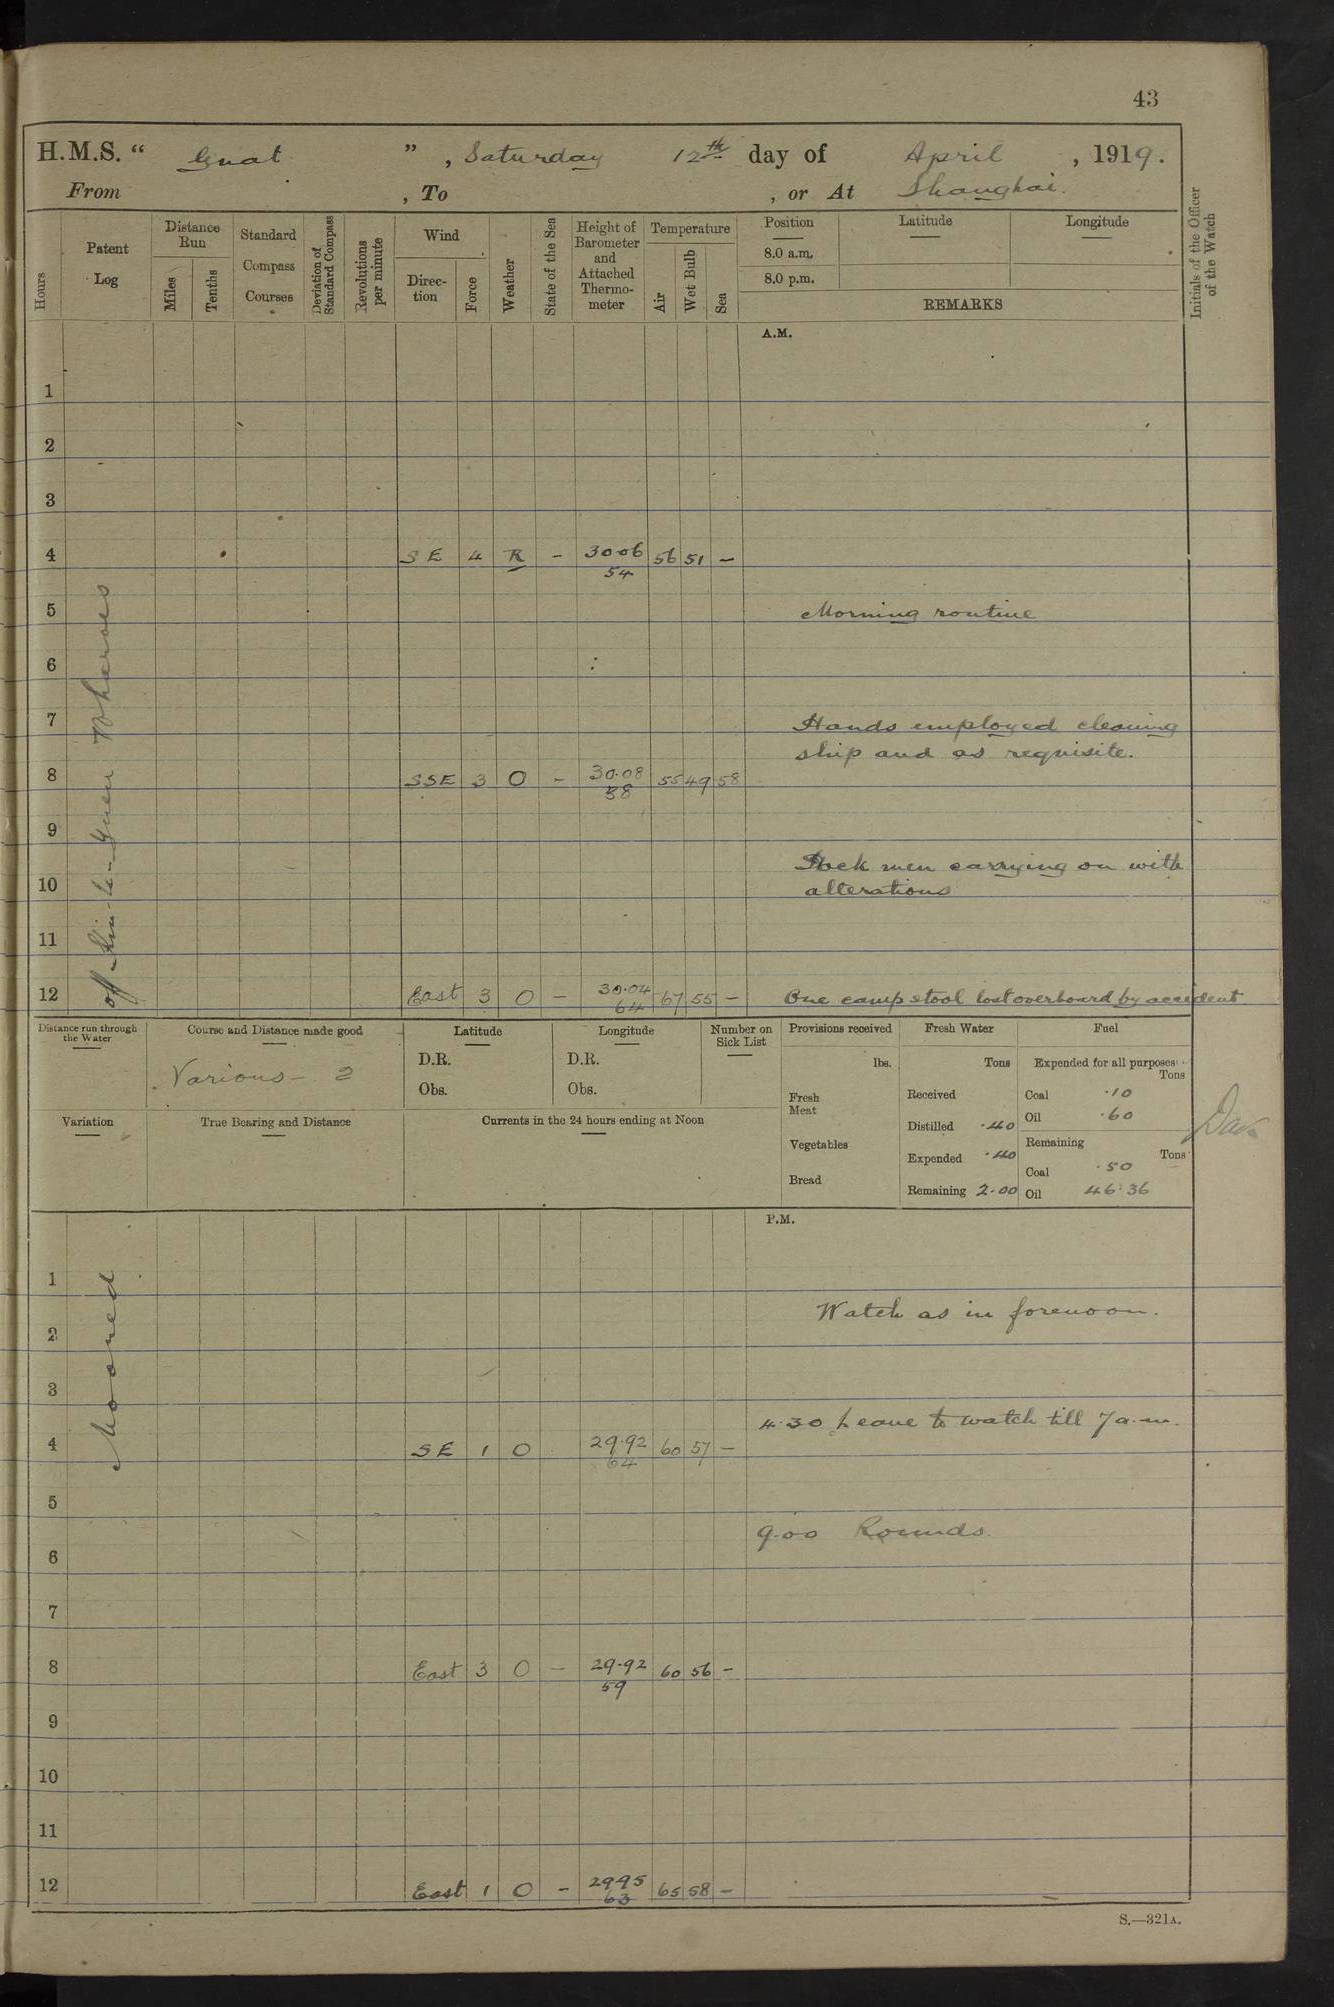 43
H.M.S. " Gnat " , Saturday 12th day of April , 1919.
From , To , or At Shanghai.
Hours
Patent Log
Distance Run
Miles
Tenths
Standard Compass Courses
Deviation of Standard Compass
Revolutions per minute
Wind
Direction
Force
Weather
State of the Sea
Height of Barometer and Attached Thermometer
Temperature
Air
Wet Bulb
Sea
Position
8.0 a.m.
8.0 p.m.
Latitude
Longitude
REMARKS
Initials of the Officer of the Watch
A.M.
1
2
3
4 SE 4 R - 30 06 56 51 -
54
5 Morning routine
6
7 Hands employed cleaning
ship and as requisite.
8 SSE 3 O - 30.08 55 49 58
58
9
Dock men carrying on with
10 alterations
11
12 East 3 O - 30.04 67 55 - One camp stool lost overboard by accident
64
Moored off Wharves
Distance run through the Water
Course and Distance made good
Various - 2
Latitude
D.R.
Obs.
Longitude
D.R.
Obs.
Number on Sick List
Provisions received
lbs.
Fresh Meat
Vegetables
Bread
Fresh Water
Tons
Received
Distilled .40
Expended .40
Remaining 2.00
Fuel
Expended for all purposes
Tons
Coal .10
Oil .60
Remaining
Tons
Coal .50
Oil 46.36
Variation
True Bearing and Distance
Currents in the 24 hours ending at Noon
P.M.
1
Watch as in forenoon.
2
3
4.30 Leave to watch till 7 a.m.
4 SE 1 O 29.92 60 57 -
64
5
9.00 Rounds.
6
7
8 East 3 O - 29.92 60 56 -
59
9
10
11
12 East 1 O - 29 95 65 58 -
63
S.—321A.